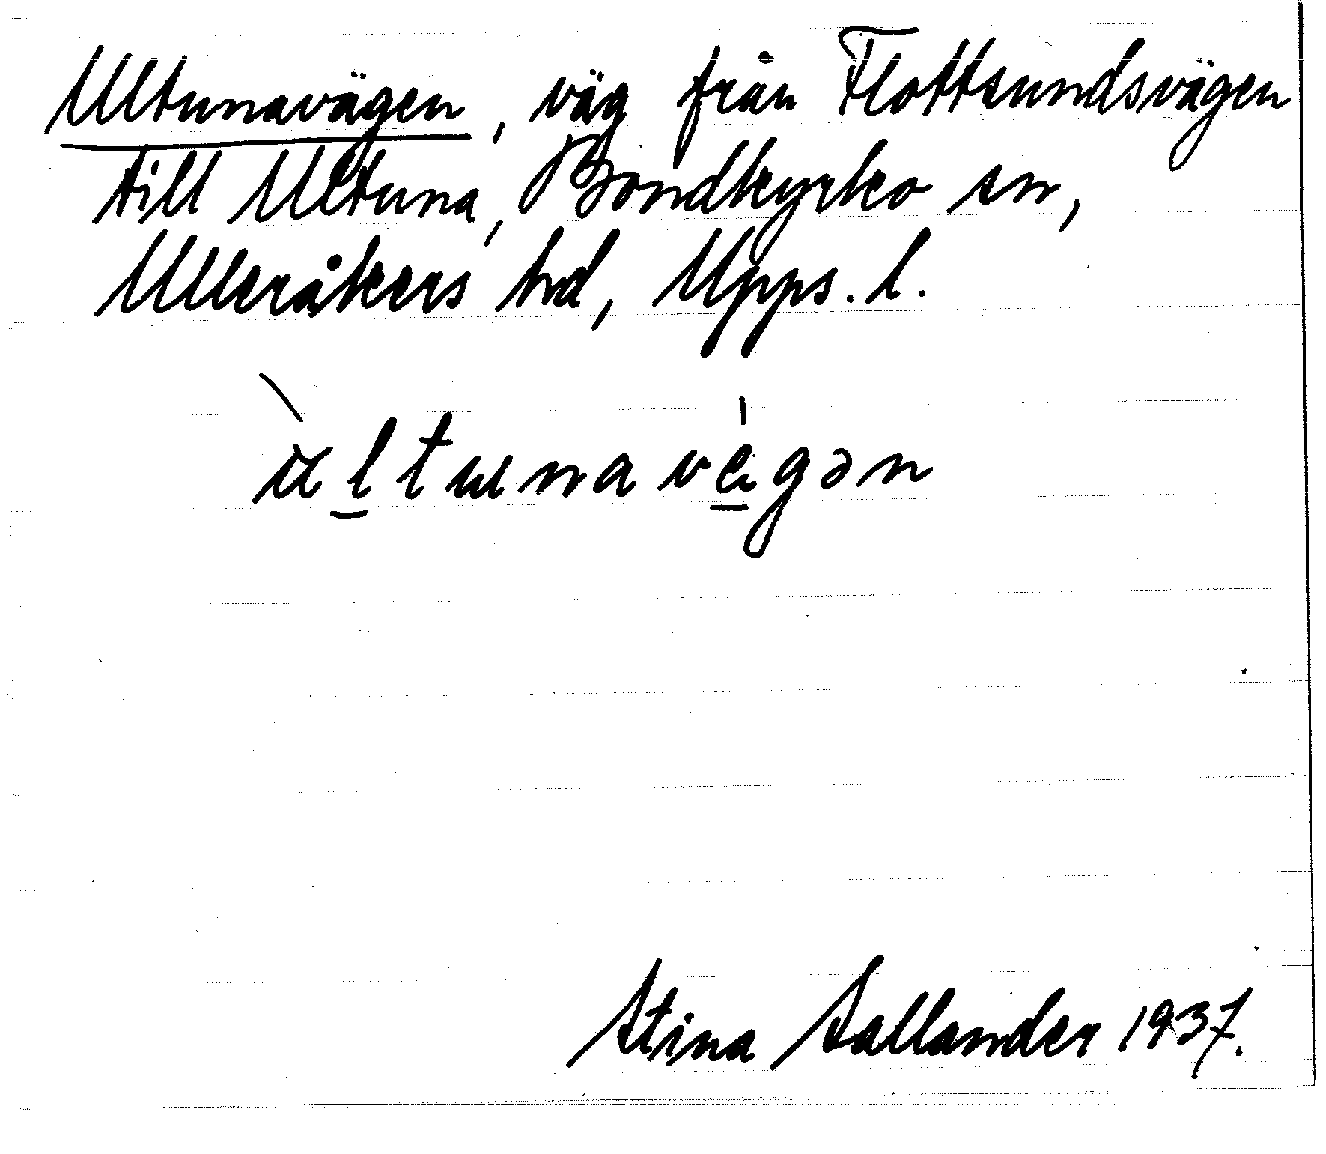 Ultunavägen, väg från Flottsundsvägen
till Ultuna, Bondkyrko sn,
Ulleråkers hd, Upps. l.
Stina Sallander 1937.